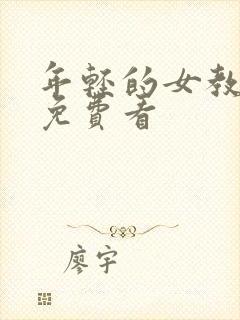 年轻的女教
免費看
廖宇